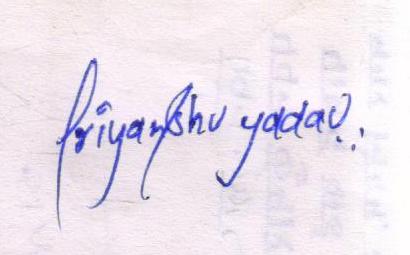 Priyanshu yadav..